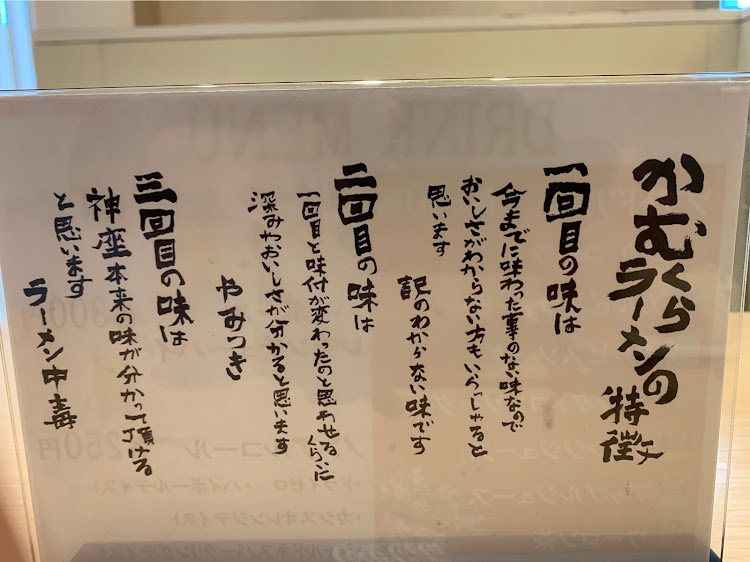 かむくらラーメンの特徴
一回目の味は
今までに味わった事のない味なので
おいしさがわからない方もいらっしゃると
思います
訳のわからない味です
二回目の味は
一回目と味付が変わったのと思わせるくらいに
深みやおいしさが分かると思います
やみつき
三回目の味は
神座本来の味が分かって頂ける
と思います
ラーメン中毒
DRINK MENU